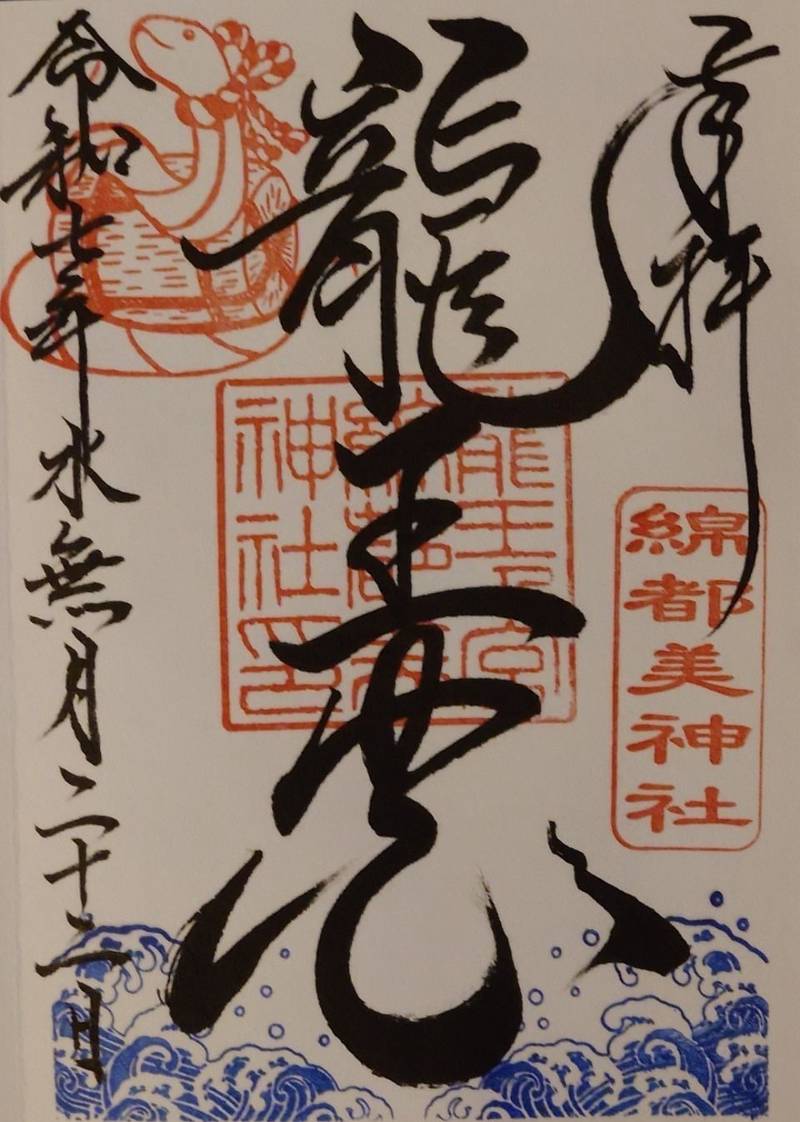 奉拝
綿都美神社
龍
龍王宮
綿都美
神社印
令和七年水無月二十二日